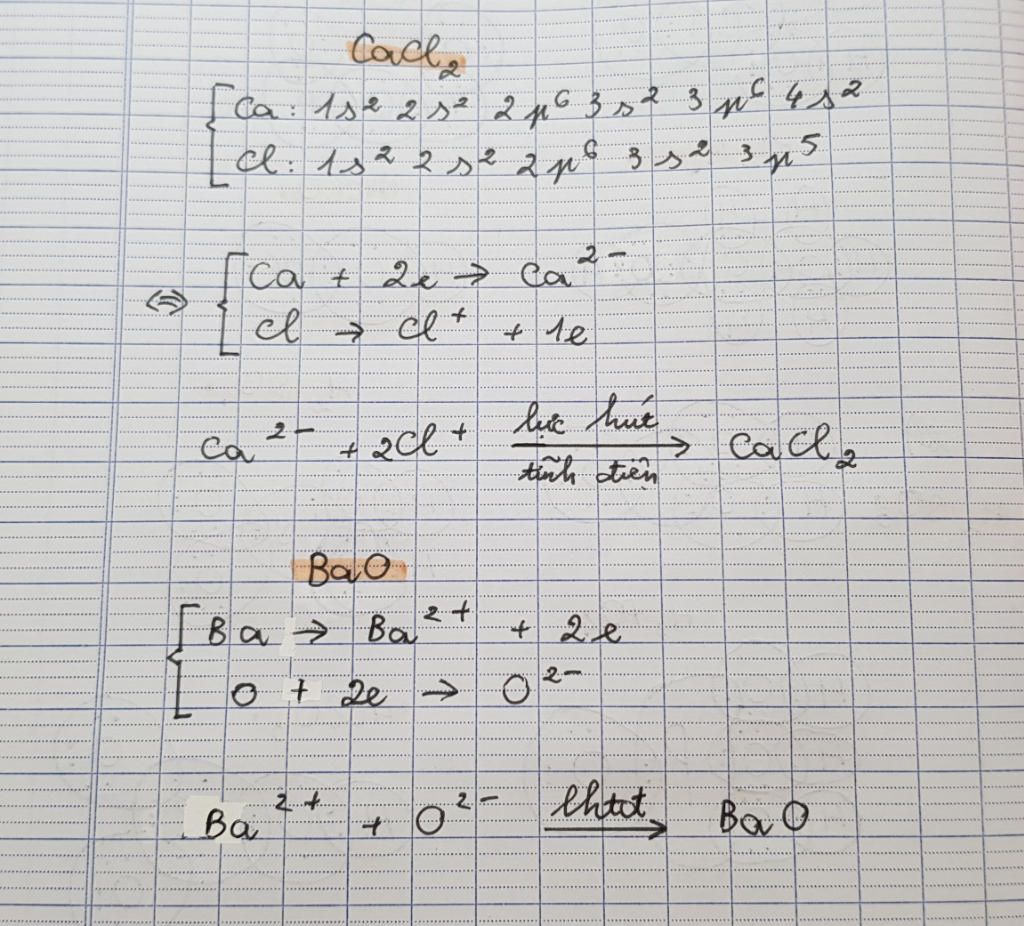 CaCl₂
Ca: 1s² 2s² 2p⁶ 3s² 3p⁶ 4s²
Cl: 1s² 2s² 2p⁶ 3s² 3p⁵
⇔ Ca + 2e → Ca²⁻
Cl → Cl⁺ + 1e
Ca²⁻ + 2Cl⁺ lực hút tĩnh điện → CaCl₂
BaO
Ba → Ba²⁺ + 2e
O + 2e → O²⁻
Ba²⁺ + O²⁻ lhtđ → BaO